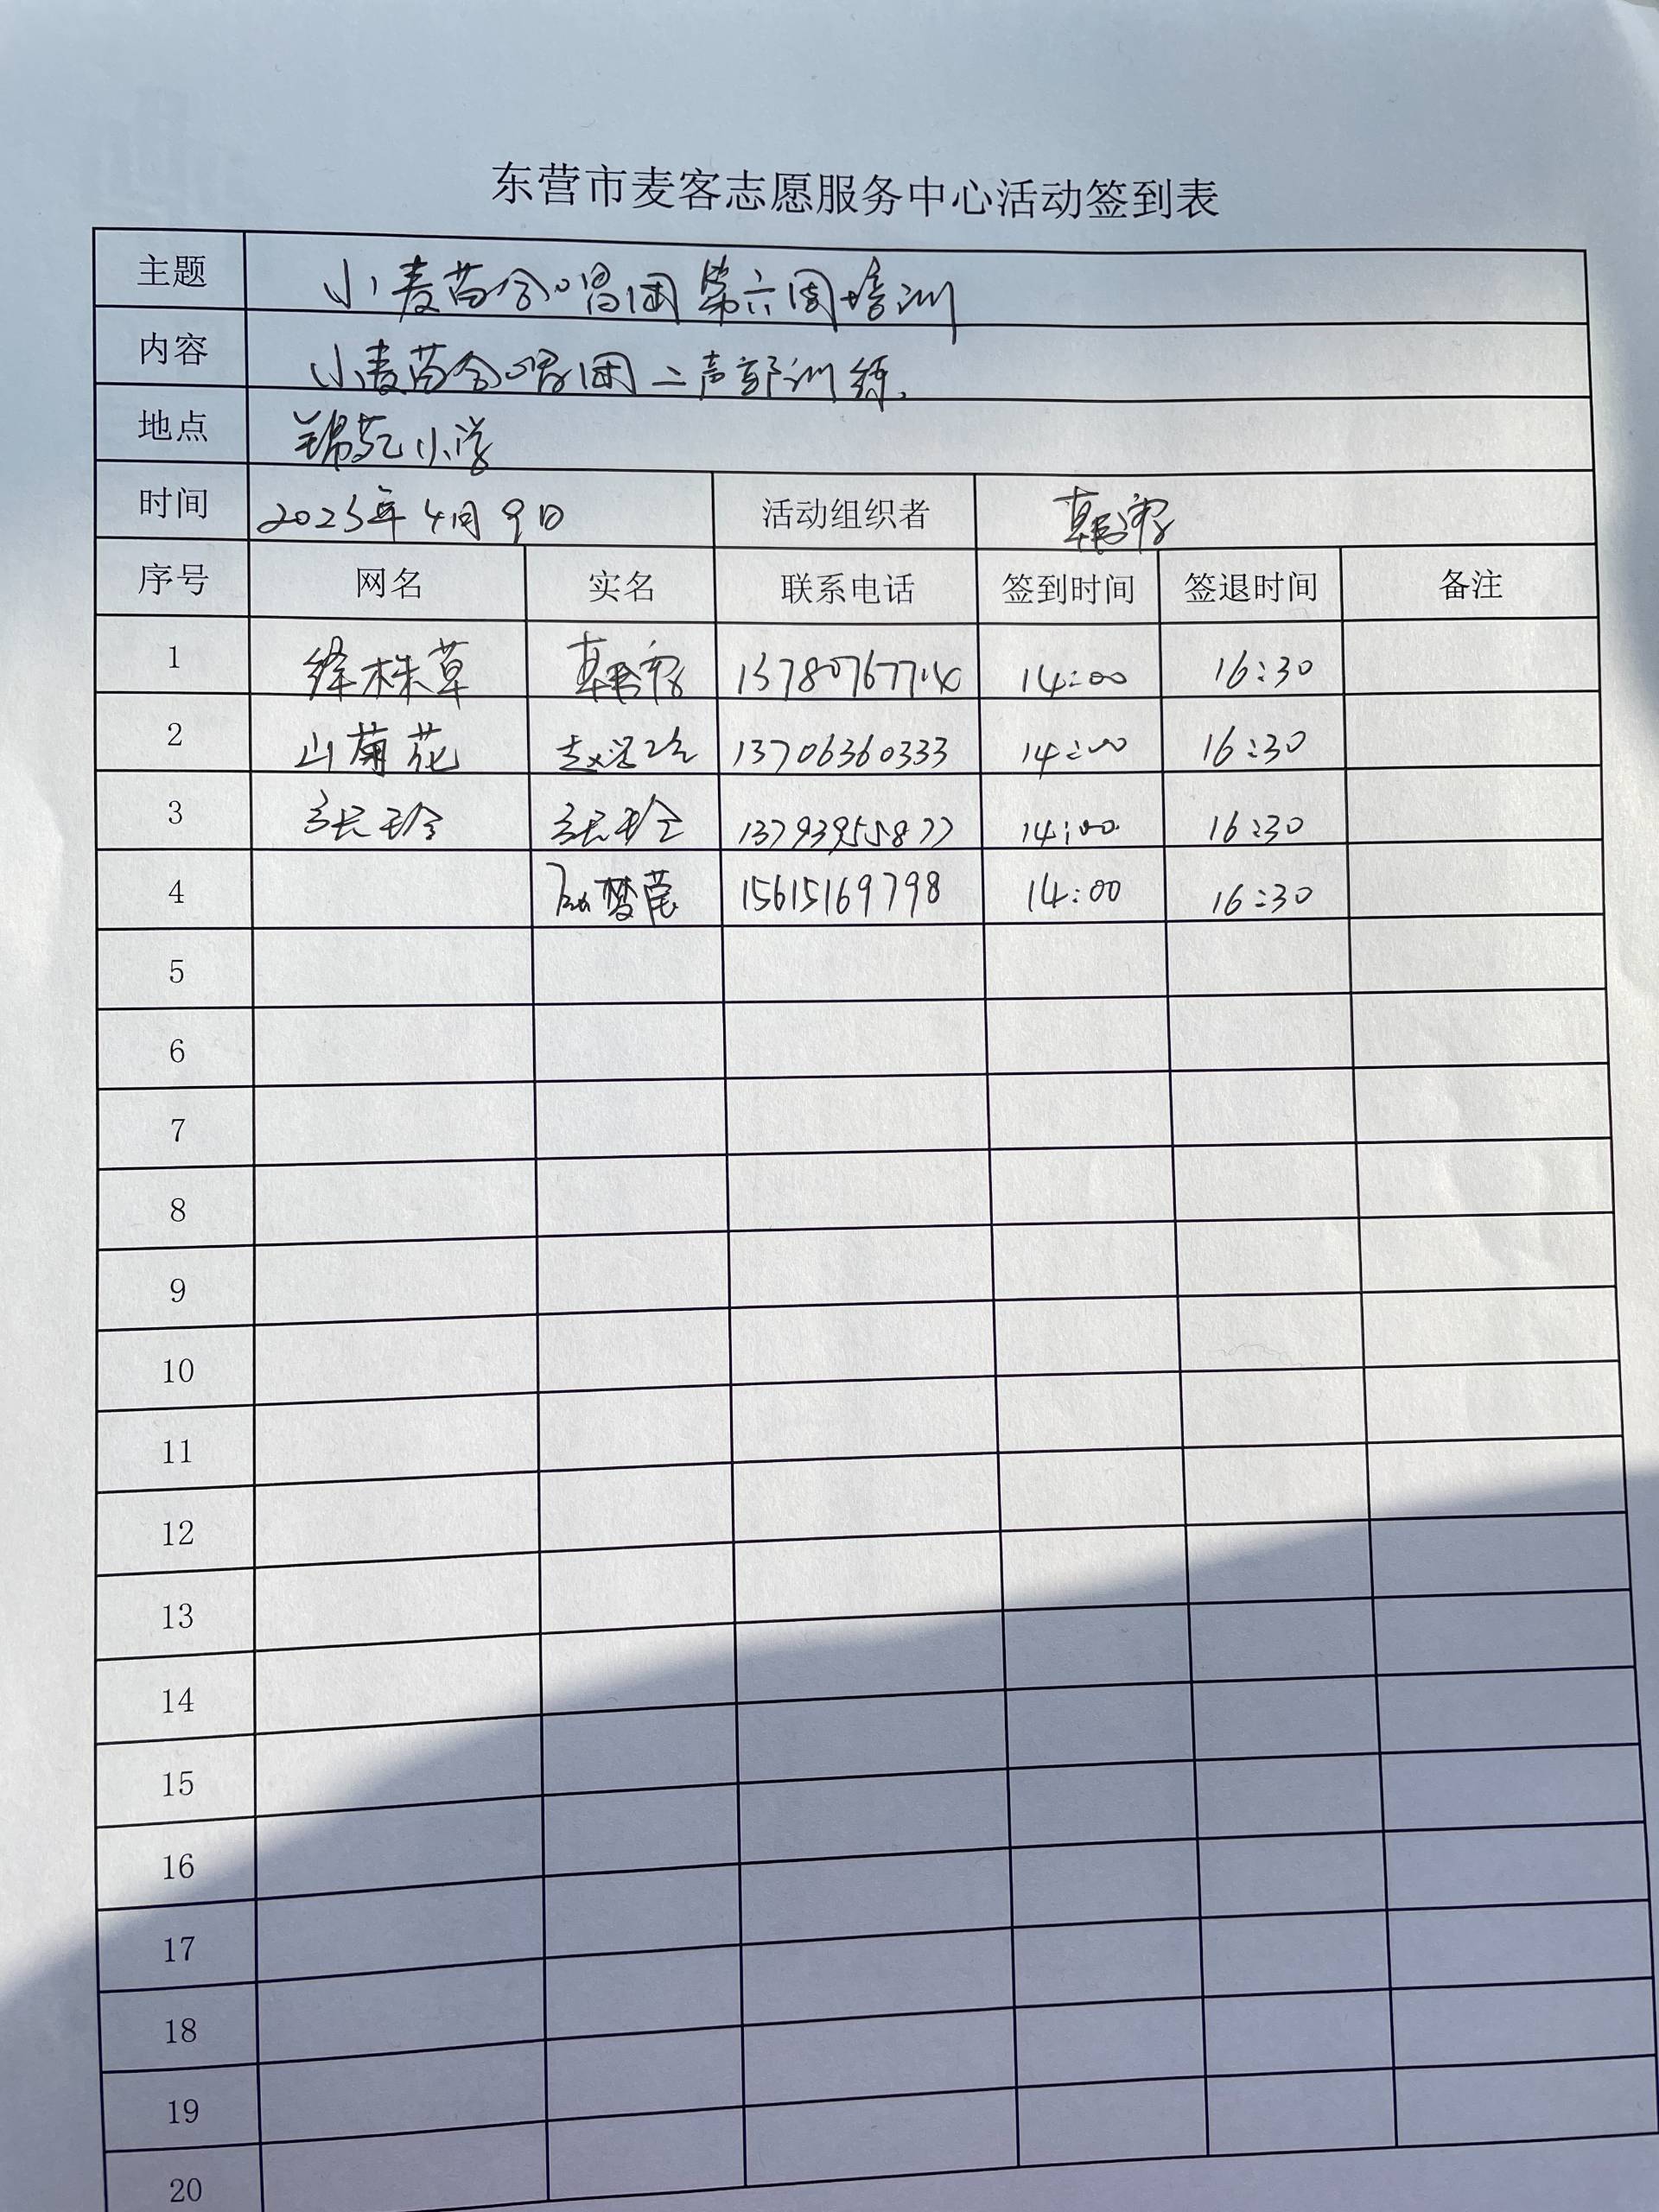 东营市麦客志愿服务中心活动签到表
主题 小麦苗合唱团第六周培训
内容 小麦苗合唱团二声部训练.
地点 锦苑小学
时间 2023年4月9日 活动组织者 韩
序号 网名 实名 联系电话 签到时间 签退时间 备注
1 绛株草 韩 14:00 16:30
2 山菊花 赵 13706360333 14:00 16:30
3 张玲 张玲 13793955877 14:00 16:30
4 梦 15615169798 14:00 16:30
5
6
7
8
9
10
11
12
13
14
15
16
17
18
19
20